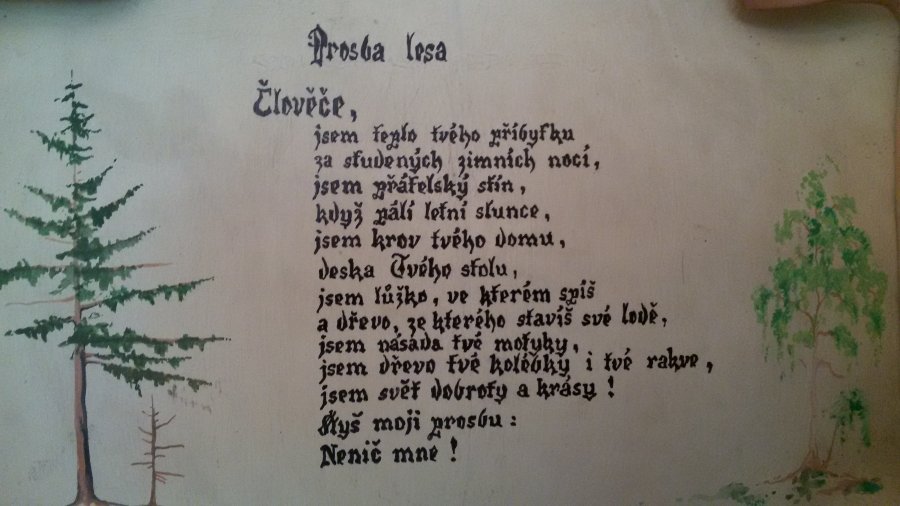 Prosba lesa
Člověče,
jsem teplo tvého příbytku
za studených zimních nocí,
jsem přátelský stín,
když pálí letní slunce,
jsem krov tvého domu,
deska Tvého stolu,
jsem lůžko, ve kterém spíš
a dřevo, ze kterého stavíš své lodě,
jsem násada tvé motyky,
jsem dřevo tvé kolébky i tvé rakve,
jsem svět dobroty a krásy!
Slyš moji prosbu:
Nenič mne!